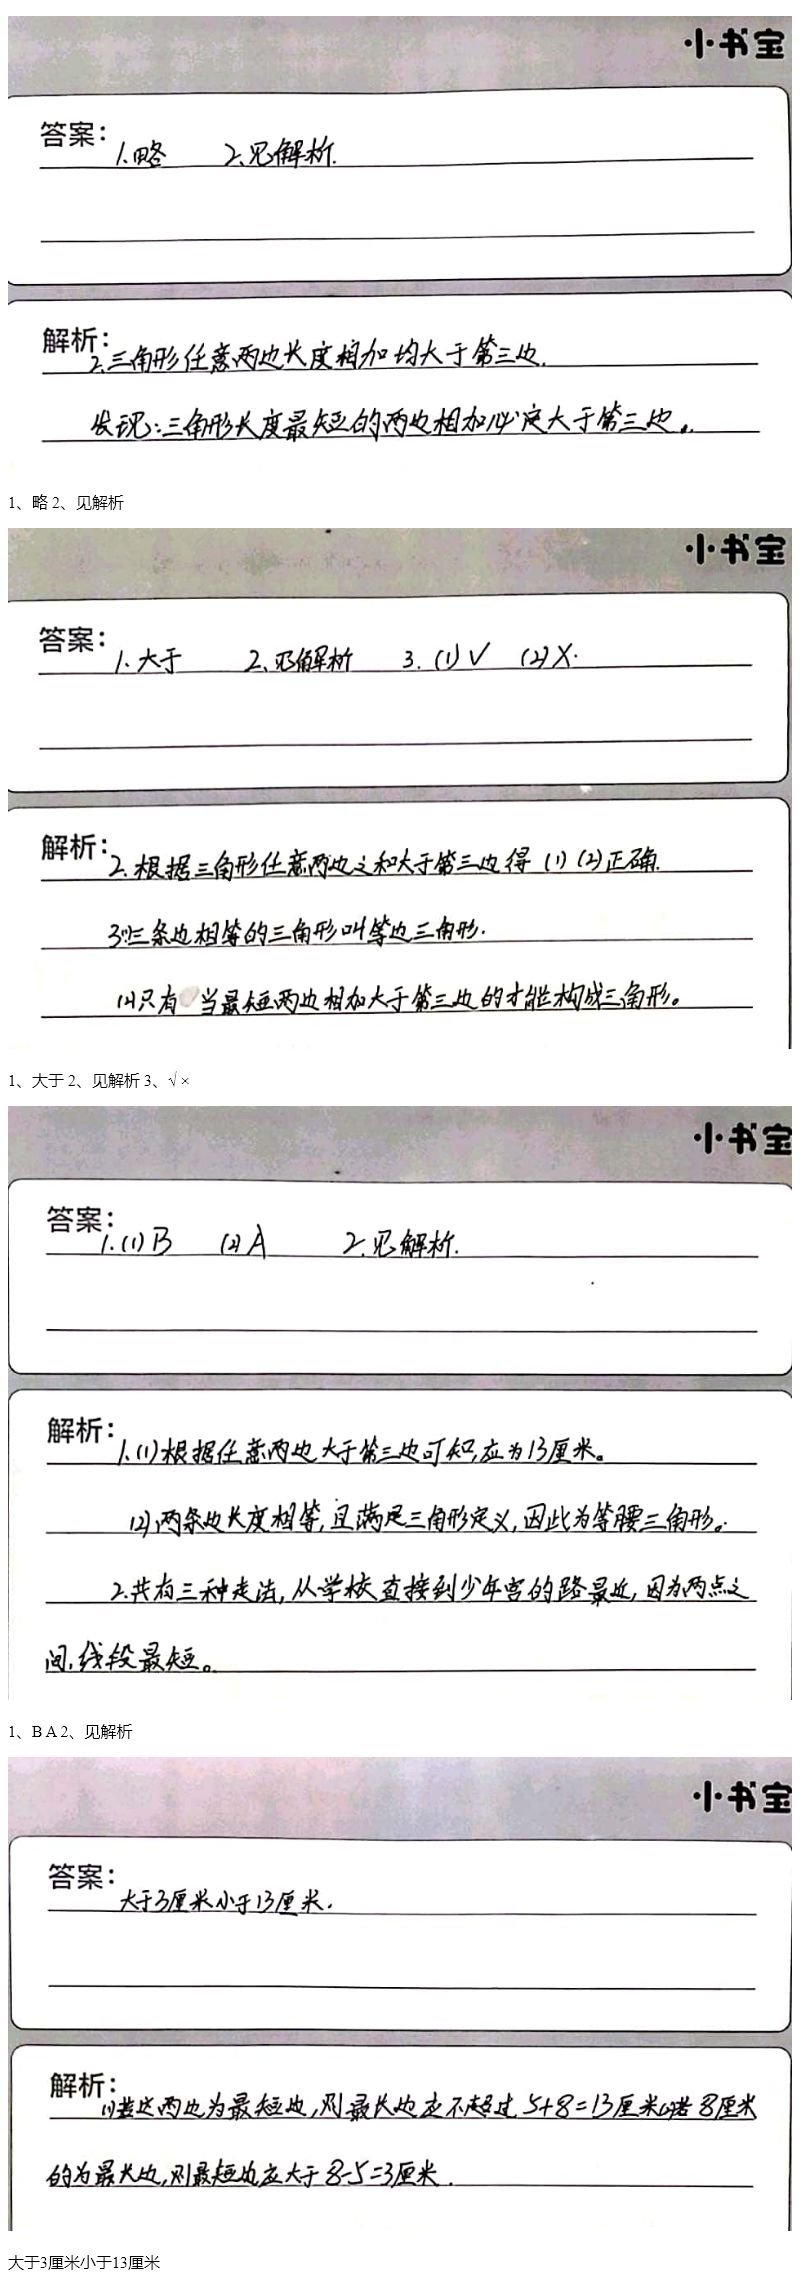 小书宝
答案：
1.略 2.见解析.
解析：
2.三角形任意两边长度相加均大于第三边.
发现：三角形长度最短的两边相加必定大于第三边。
1、略 2、见解析
小书宝
答案：
1.大于 2.见解析 3.(1)√ (2)×.
解析：
2.根据三角形任意两边之和大于第三边得 (1)(2)正确.
3.(1)三条边相等的三角形叫等边三角形.
(2)只有 当最短两边相加大于第三边的才能构成三角形。
1、大于 2、见解析 3、√ ×
小书宝
答案：
1.(1)B (2)A 2.见解析.
解析：
1.(1)根据任意两边大于第三边可知,应为13厘米。
(2)两条边长度相等,且满足三角形定义,因此为等腰三角形。
2.共有三种走法,从学校直接到少年宫的路最近,因为两点之
间,线段最短。
1、B A 2、见解析
小书宝
答案：
大于3厘米小于13厘米.
解析：
(1)若这两边为最短边,则最长边应不超过 5+8=13厘米(2)若 8厘米
的为最大边,则最短边应大于 8-5=3厘米.
大于3厘米小于13厘米